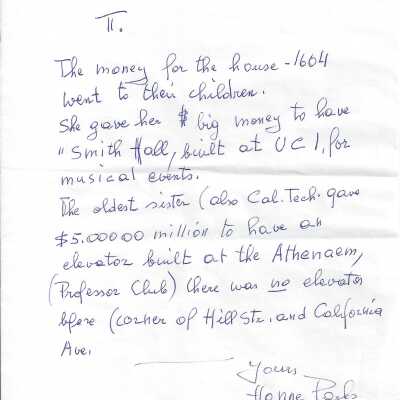 II.
The money for the house - 1604
went to their children.
She gave her $ big money to have
"Smith Hall, built at UCI, for
musical events.
The oldest sister (also Cal. Tech. gave
$5.00000 million to have an
elevator built at the Athenaem,
(Professor Club) there was no elevator
before (corner of Hill Str. and California
Ave.
Yours
Hanne